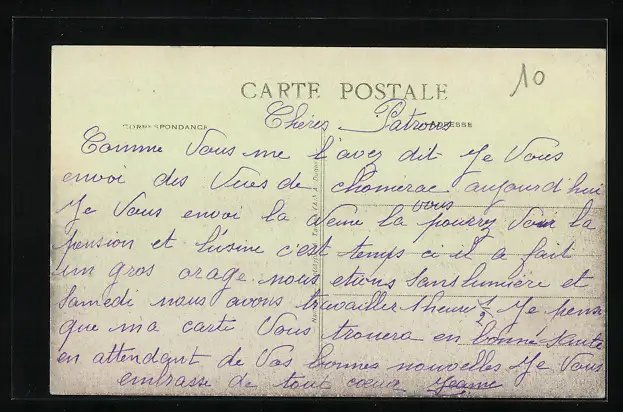 10
CARTE POSTALE
CORRESPONDANCE
ADRESSE
Chères Patrones
Comme Vous me l'avez dit Je Vous
envoi des Vues de chomerac aujourd'hui
Je Vous envoi la 2eme la vous pourrez Voir la
pension et l'usine c'est temps ci il a fait
un gros orage nous etions sans lumiere et
Samedi nous avons travailler 1 heure 1/2 Je pense
que ma carte Vous trouera en bonne Sante
en attendant de Vos bonnes nouvelles Je Vous
embrasse de tout coeur Jeanne